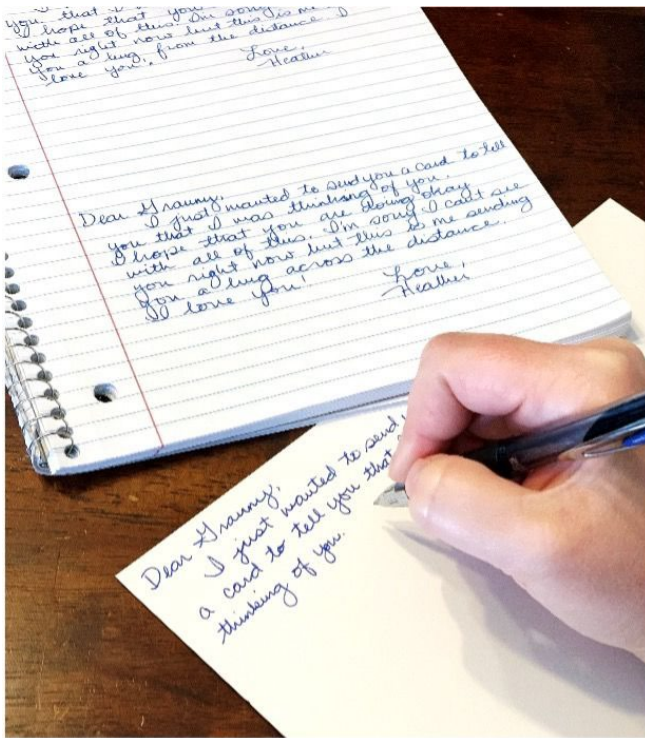 you, that I
I hope that you
with all of this. I'm sorry
you right now but this is me
you a hug, from the distance. I
love you!
Love,
Heather
Dear Granny,
I just wanted to send you a card to tell
you that I was thinking of you.
I hope that you are doing okay
with all of this. I'm sorry I can't see
you right now but this is me sending
you a hug across the distance.
I love you!
Love,
Heather
Dear Granny,
I just wanted to send
a card to tell you that
thinking of you.